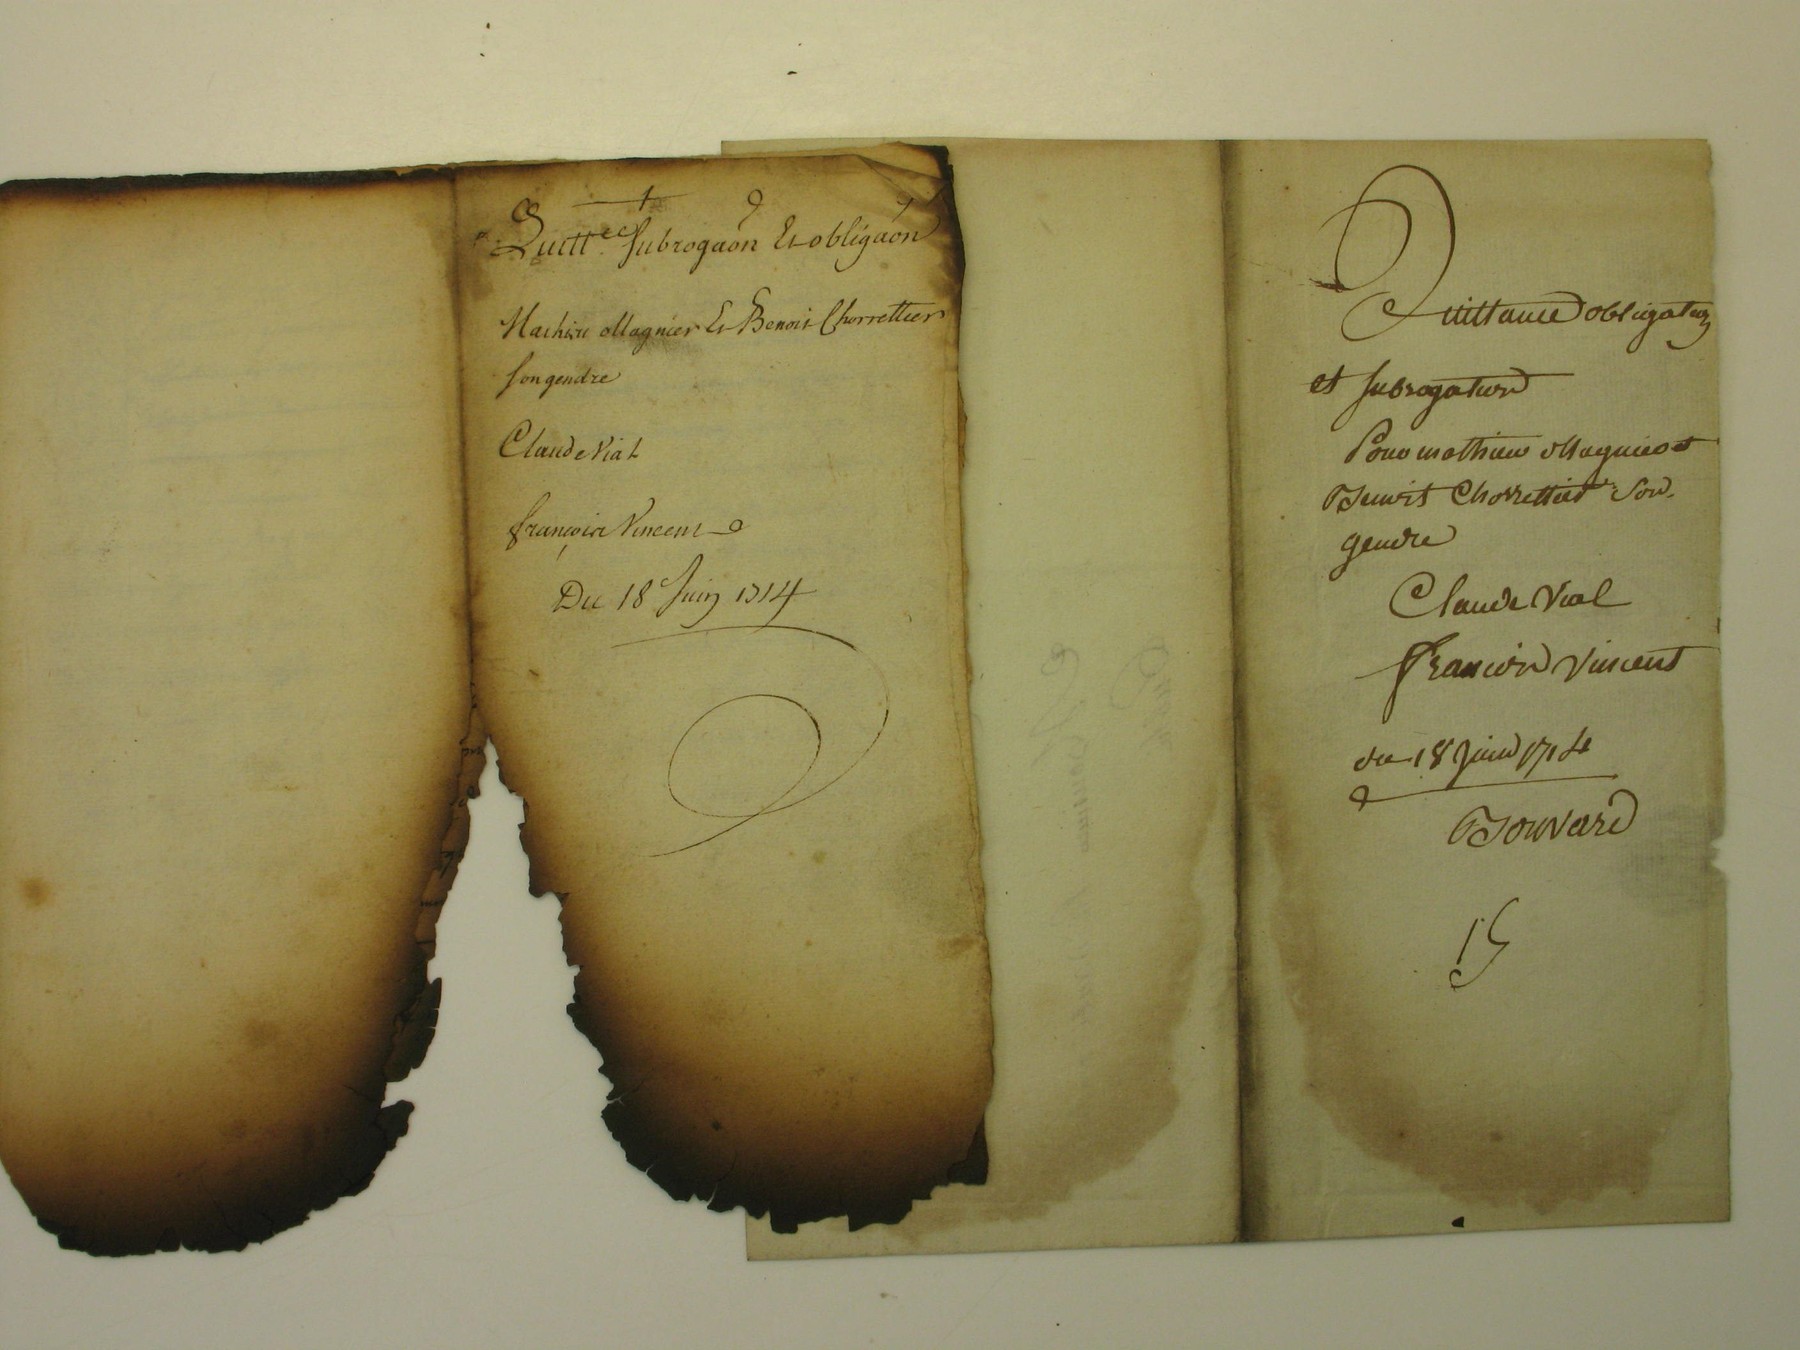 Quittce subrogaon Et obligaon
Mathieu Magnier Et Benoit Chorrettier
son gendre
Claude Vial
françois Vincent
Du 18 Juin 1714
Quittance obligation
et subrogation
Pour mathieu Magnier et
Benoit Chorrettier son
gendre
Claude Vial
francois Vincent
du 18 Juin 1714
Bouvard